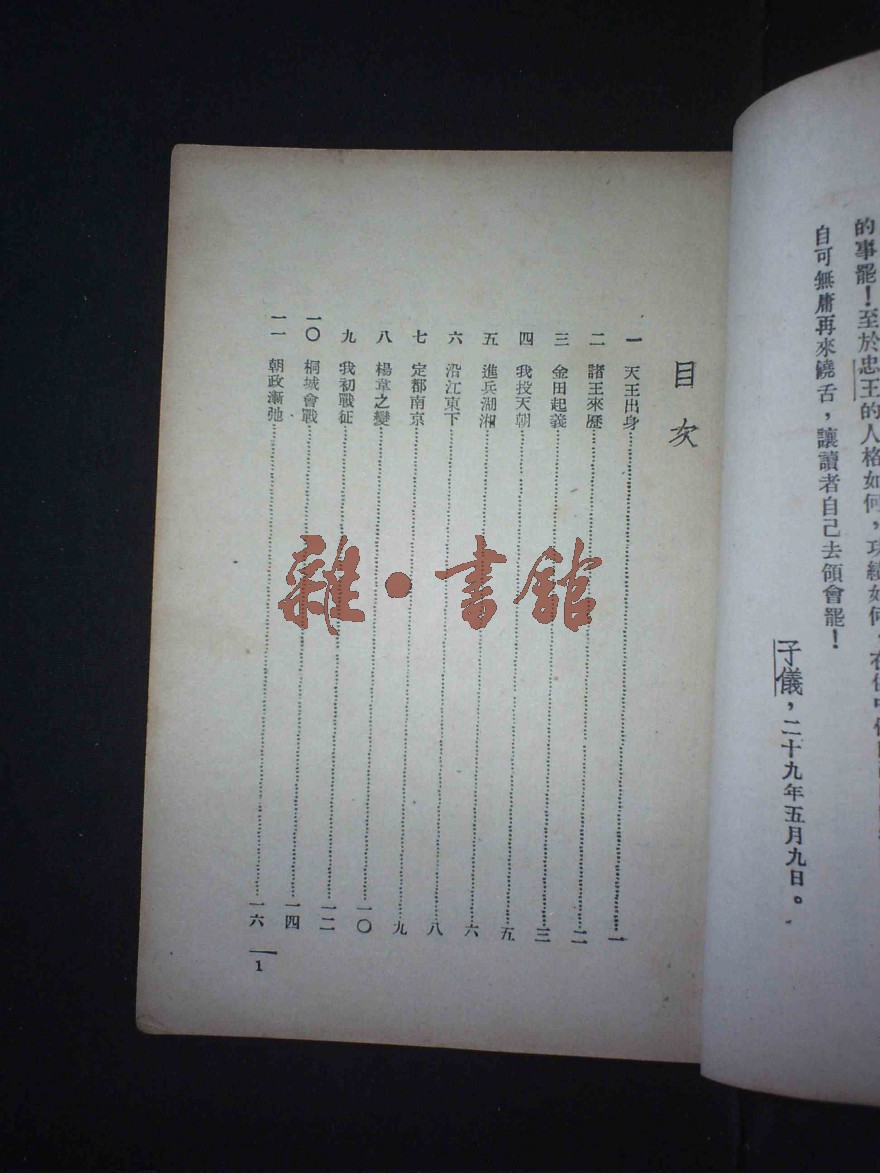 的事罷！至於忠王的人格如何，功績如何，
自可無庸再來饒舌，讓讀者自己去領會罷！
子儀，二十九年五月九日。
目次
一 天王出身……一
二 諸王來歷……二
三 金田起義……三
四 我投天朝……五
五 進兵湖湘……六
六 沿江東下……八
七 定都南京……九
八 楊韋之變……一〇
九 我初戰征……一二
一〇 桐城會戰……一四
一一 朝政漸弛……一六
1
雜·書館